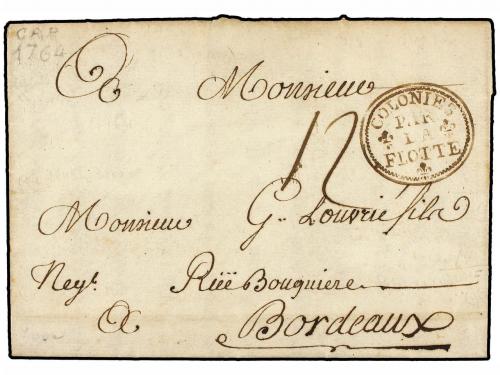 CAP
1764
A Monsieur
COLONIES
PAR
LA
FLOTTE
12
Monsieur G. Louvrié fils
Negt. Rüe Bouquiere
A Bordeaux